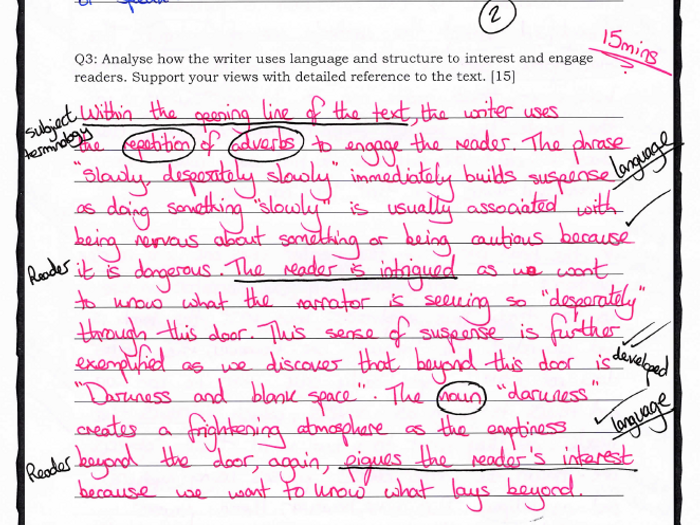 or
②
Q3: Analyse how the writer uses language and structure to interest and engage
readers. Support your views with detailed reference to the text. [15]
15mins
?
subject
terminology
Within the opening line of the text, the writer uses
the repetition of adverbs to engage the reader. The phrase
"slowly, desperately slowly" immediately builds suspense
language
as doing something "slowly" is usually associated with
being nervous about something or being cautious because
Reader
it is dangerous. The reader is intrigued as we want
to know what the narrator is seeing so "desperately"
through this door. This sense of suspense is further
exemplified as we discover that beyond this door is
developed
"Darkness and blank space". The noun "darkness"
creates a frightening atmosphere as the emptiness
language
Reader
beyond the door, again, piques the reader's interest
because we want to know what lays beyond.